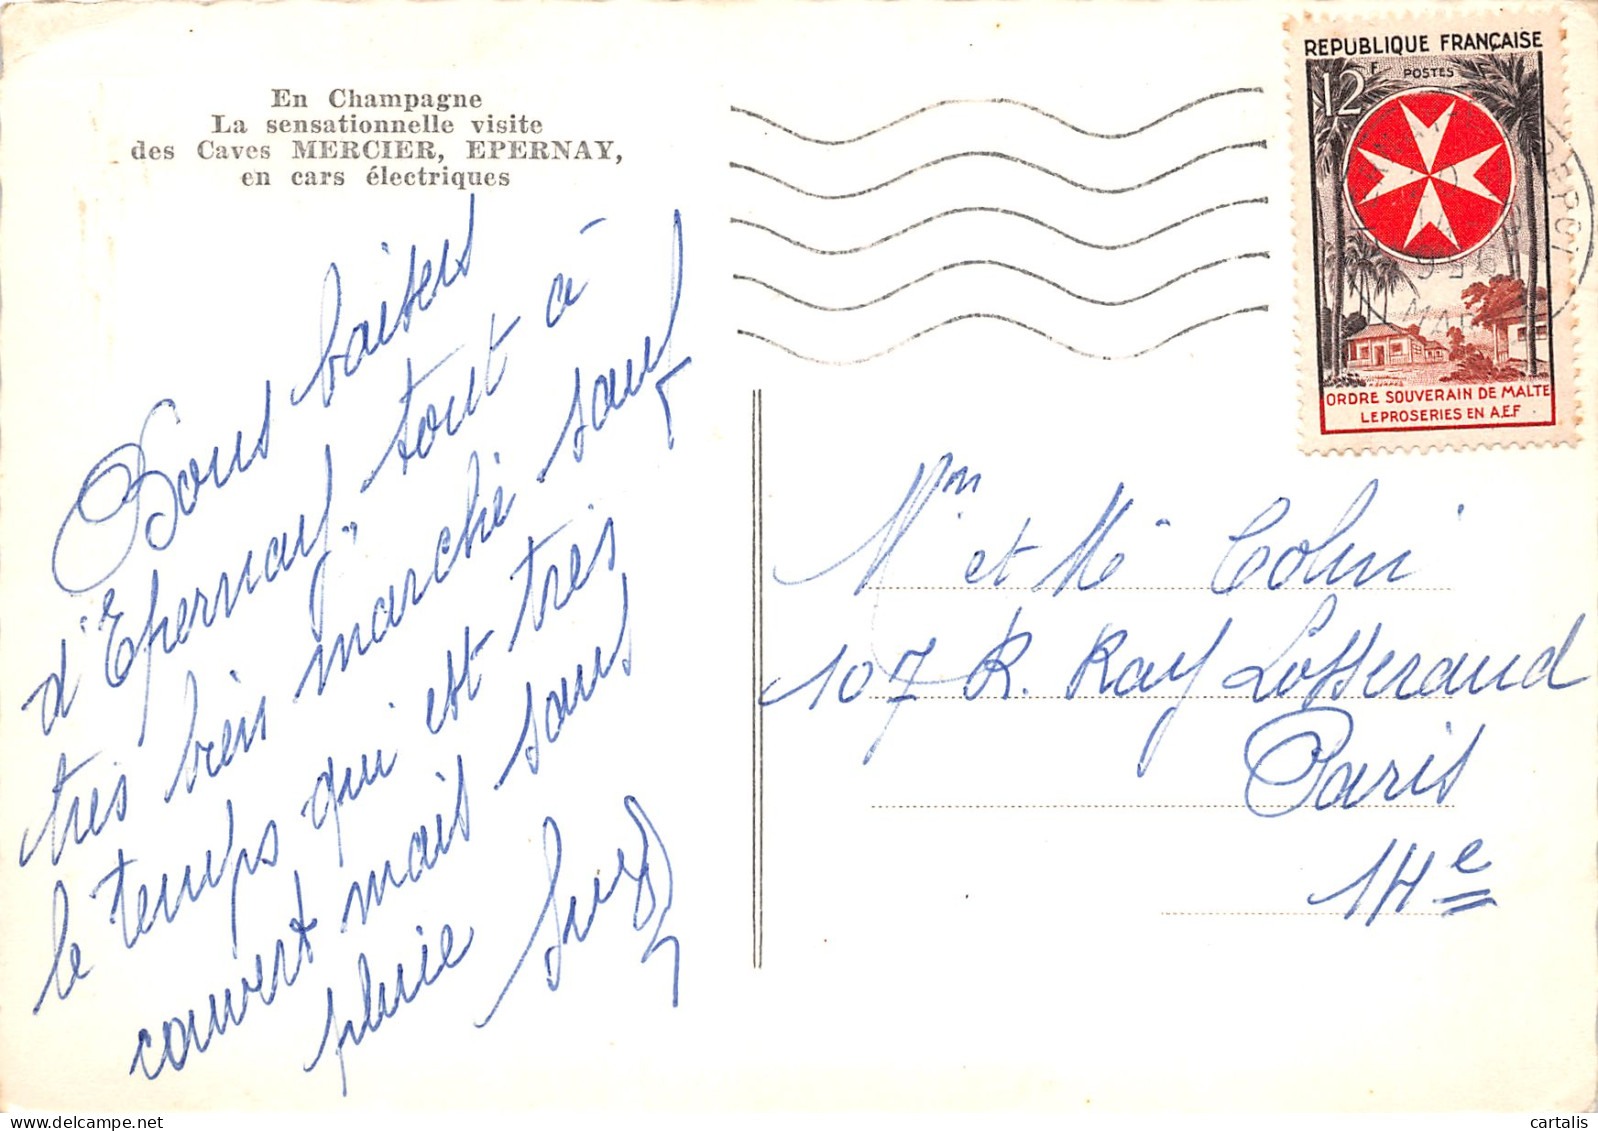 En Champagne
La sensationnelle visite
des Caves MERCIER, EPERNAY,
en cars électriques
REPUBLIQUE FRANÇAISE
12F POSTES
ORDRE SOUVERAIN DE MALTE
LEPROSERIES EN A.E.F
Bons baisers
d'Epernay, tout à
très bien marché sauf
le temps qui est très
couvert mais sans
pluie Suzy
Mr et Me Colin
107 R. Ray Losserand
Paris
14e
cartalis